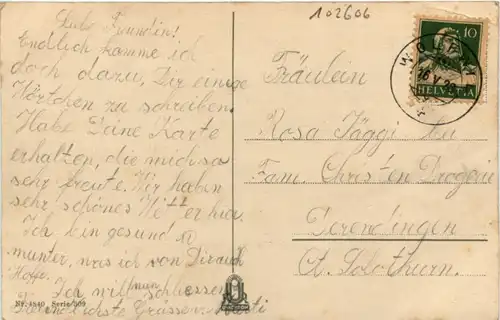 102606
Liebe Freundin!
Endlich komme ich
doch dazu, Dir einige
Wörtchen zu schreiben.
Habe Deine Karte
erhalten, die mich so
sehr freute. Wir haben
sehr schönes Wetter hier.
Ich bin gesund &
munter, was ich von Dir auch
hoffe.
Ich will nun schliessen
Freundlichste Grüsse
Nr. 4840 Serie 309
10
HELVETIA
16.V.
Fräulein
Rosa Jäggi bei
Fam. Christen Drogerie
Derendingen
Kt. Solothurn.